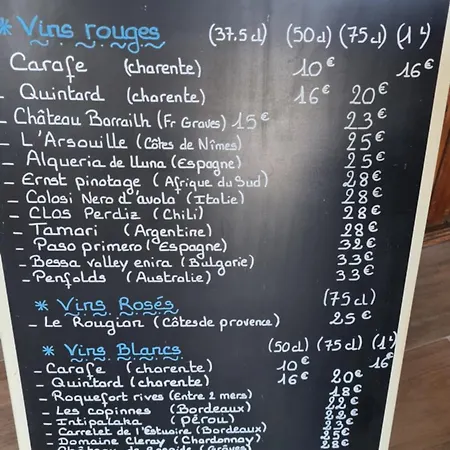 * Vins rouges (37.5cl) (50cl) (75cl) (1L)
Carafe (charente) 10€ 16€
- Quintard (charente) 16€ 20€
- Château Barrailh (Fr Graves) 15€ 23€
- L'Arsouille (Côtes de Nîmes) 25€
- Alqueria de lluna (Espagne) 25€
- Ernst pinotage (Afrique du Sud) 28€
- Colosi Nero d'avola (Italie) 28€
- Clos Perdiz (Chili) 28€
- Tamari (Argentine) 28€
- Paso primero (Espagne) 32€
- Bessa valley enira (Bulgarie) 33€
- Penfolds (Australie) 33€
* Vins Rosés (75cl)
- Le Rougian (Côtes de provence) 25€
* Vins Blancs (50cl) (75cl) (1L)
- Carafe (charente) 10€ 16€
- Quintard (charente) 16€ 20€
- Roquefort rives (Entre 2 mers) 18€
- Les copinnes (Bordeaux) 22€
- Intipalaka (pérou)
- Carrelet de l'Estuaire (Bordeaux)
- Domaine Cleray (Chardonnay)